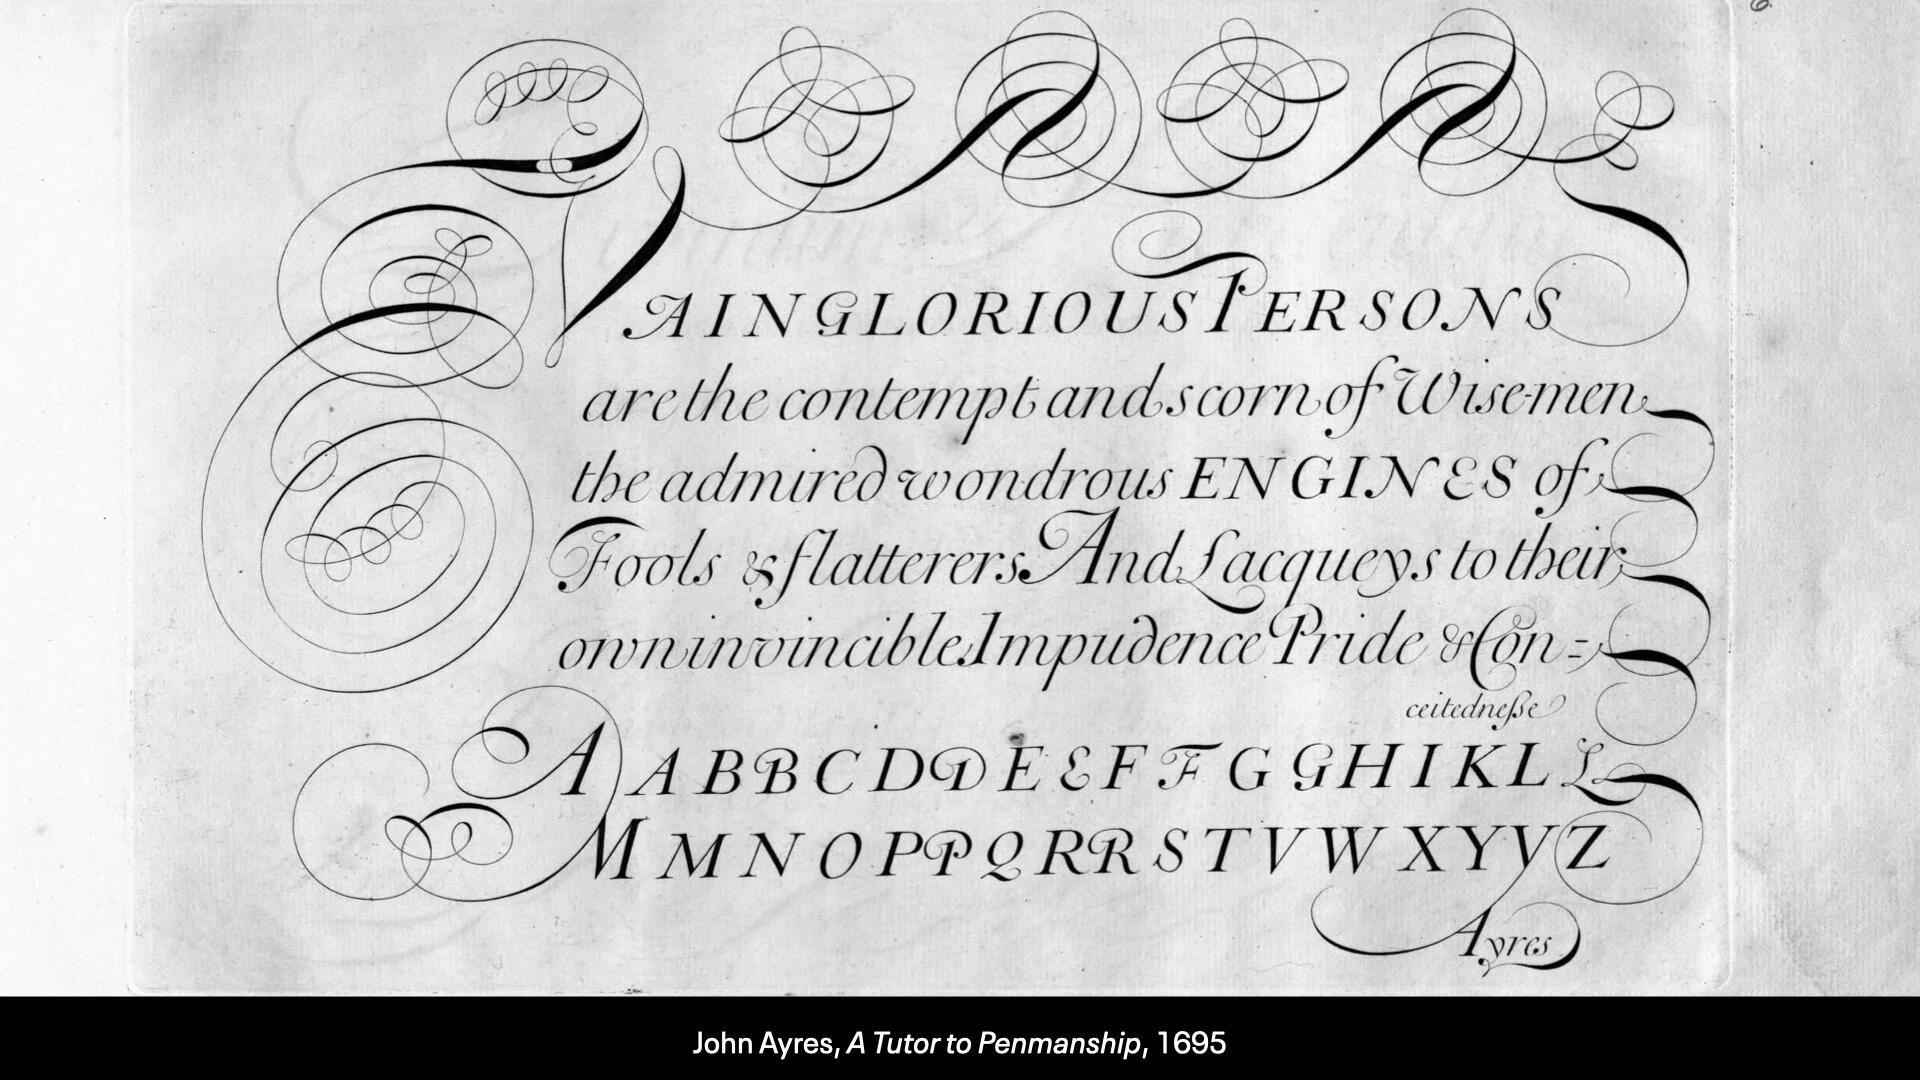 VAINGLORIOUS PERSONS
are the contempt and scorn of Wise-men
the admired wondrous ENGINES of
Fools & flatterers And Lacqueys to their
own invincible Impudence Pride & Con=
ceitedneſse
A A B B C D D E E F F G G H I K L L
M M N O P P Q R R S T V W X Y Y Z
Ayres
John Ayres, A Tutor to Penmanship, 1695